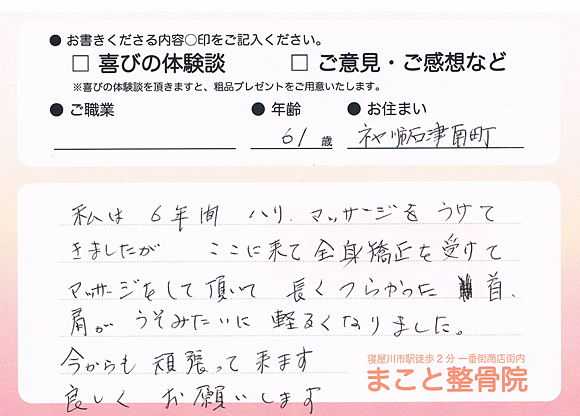 ● お書きくださる内容○印をご記入ください。
□ 喜びの体験談 □ ご意見・ご感想など
※喜びの体験談を頂きますと、粗品プレゼントをご用意いたします。
● ご職業 ● 年齢 ● お住まい
61 歳 ネヤ川石津南町
私は 6年間 ハリ、マッサージを うけて
きましたが ここに来て 全身矯正を受けて
マッサージをして頂いて 長くつらかった 首、
肩が うそみたいに 軽るくなりました。
今からも 頑張って 来ます
良しく お願いします
寝屋川市駅徒歩2分 一番街商店街内
まこと整骨院